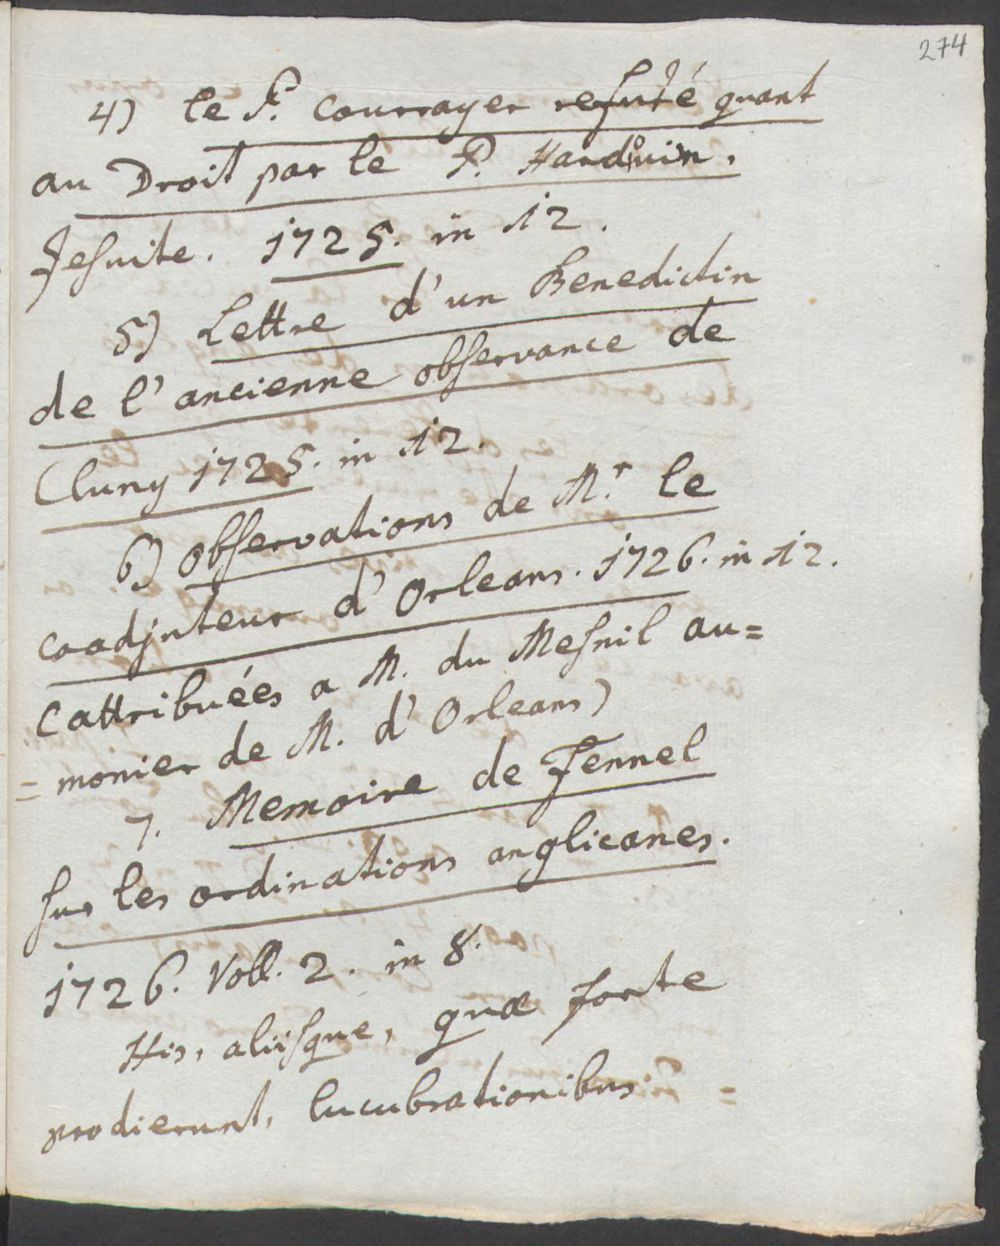 274
4) le P. Courrayer refuté quant
au Droit par le P. Hardouin.
Jesuite. 1725. in 12.
5) Lettre d'un Benedictin
de l'ancienne observance de
Cluny 1725. in 12.
6) observations de M.r le
coadjuteur d'Orleans. 1726. in 12.
(attribuées a M. du Mesnil au=
=monier de M. d'Orleans)
7. Memoire de Fennel
sur les ordinations anglicanes.
1726. Voll. 2. in 8.
His, aliisque, quæ forte
prodierunt, lucubrationibus